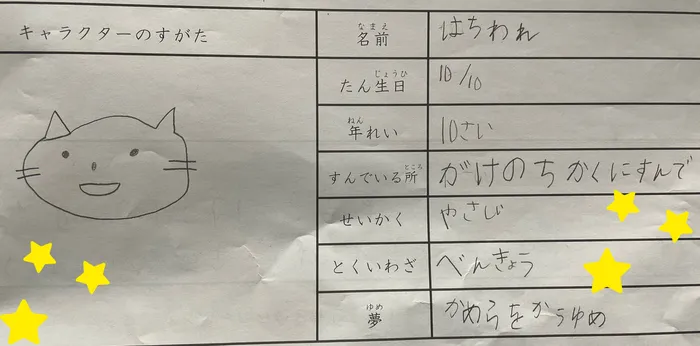 キャラクターのすがた
なまえ
名前 はちわれ
じょうび
たん生日 10/10
ねん
年れい 10さい
ところ
すんでいる所 がけのちかくにすんで
せいかく やさし
とくいわざ べんきょう
ゆめ
夢 かめらをかうゆめ